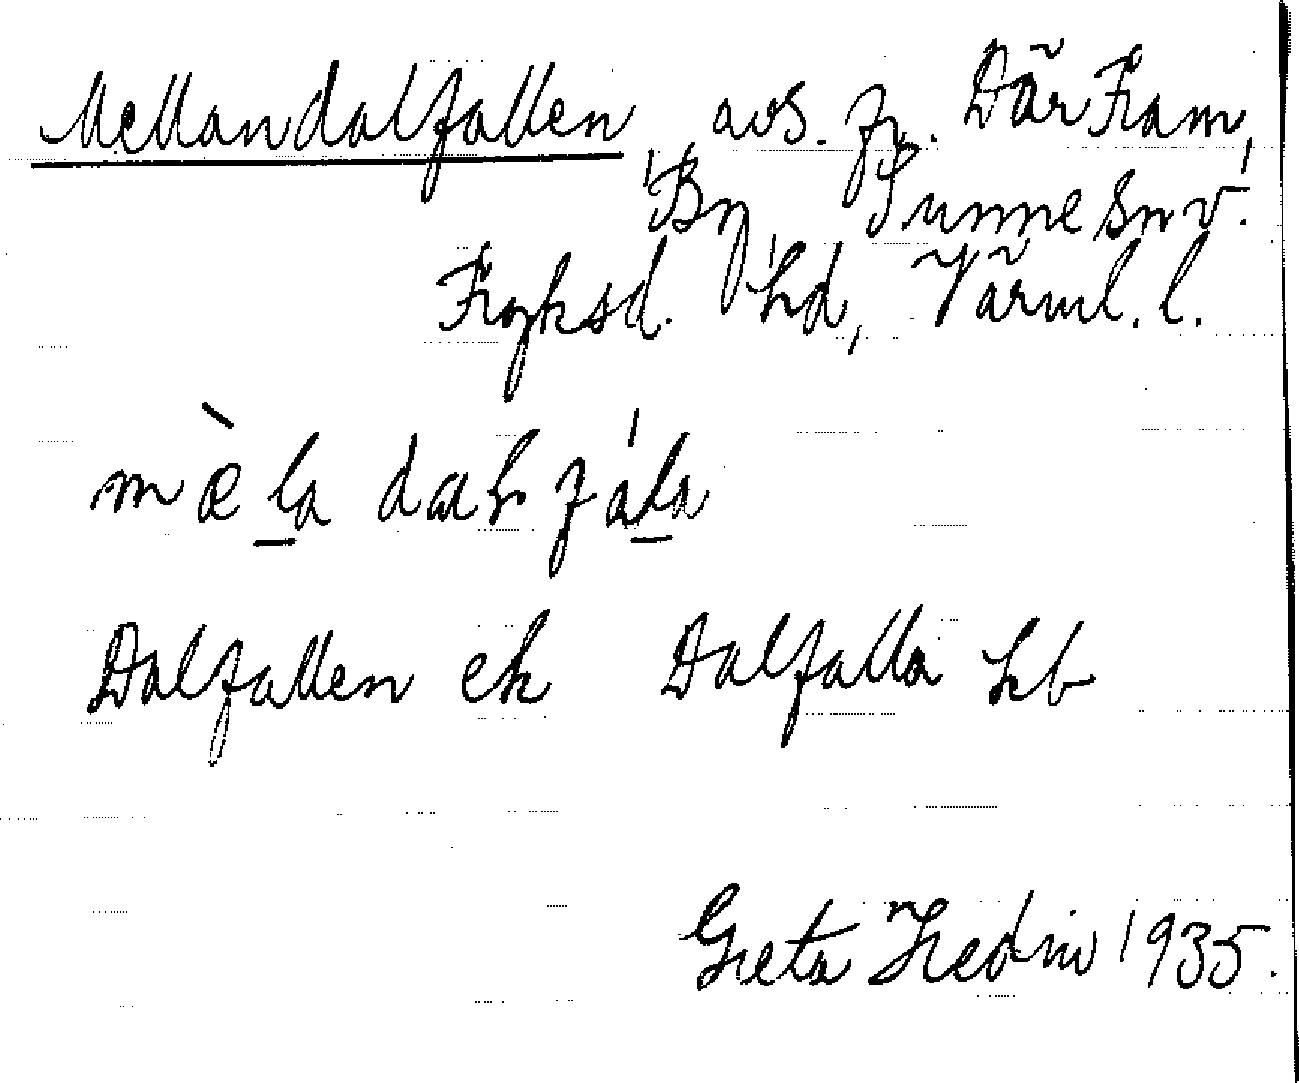 Mellandalfallen avs. fr. Där Fram,
By, Sunne sn v.
Fryksd. hd, Värml. l.
mèla dal fála
Dalfallen ek Dalfalla hb
Greta Hedin 1935.